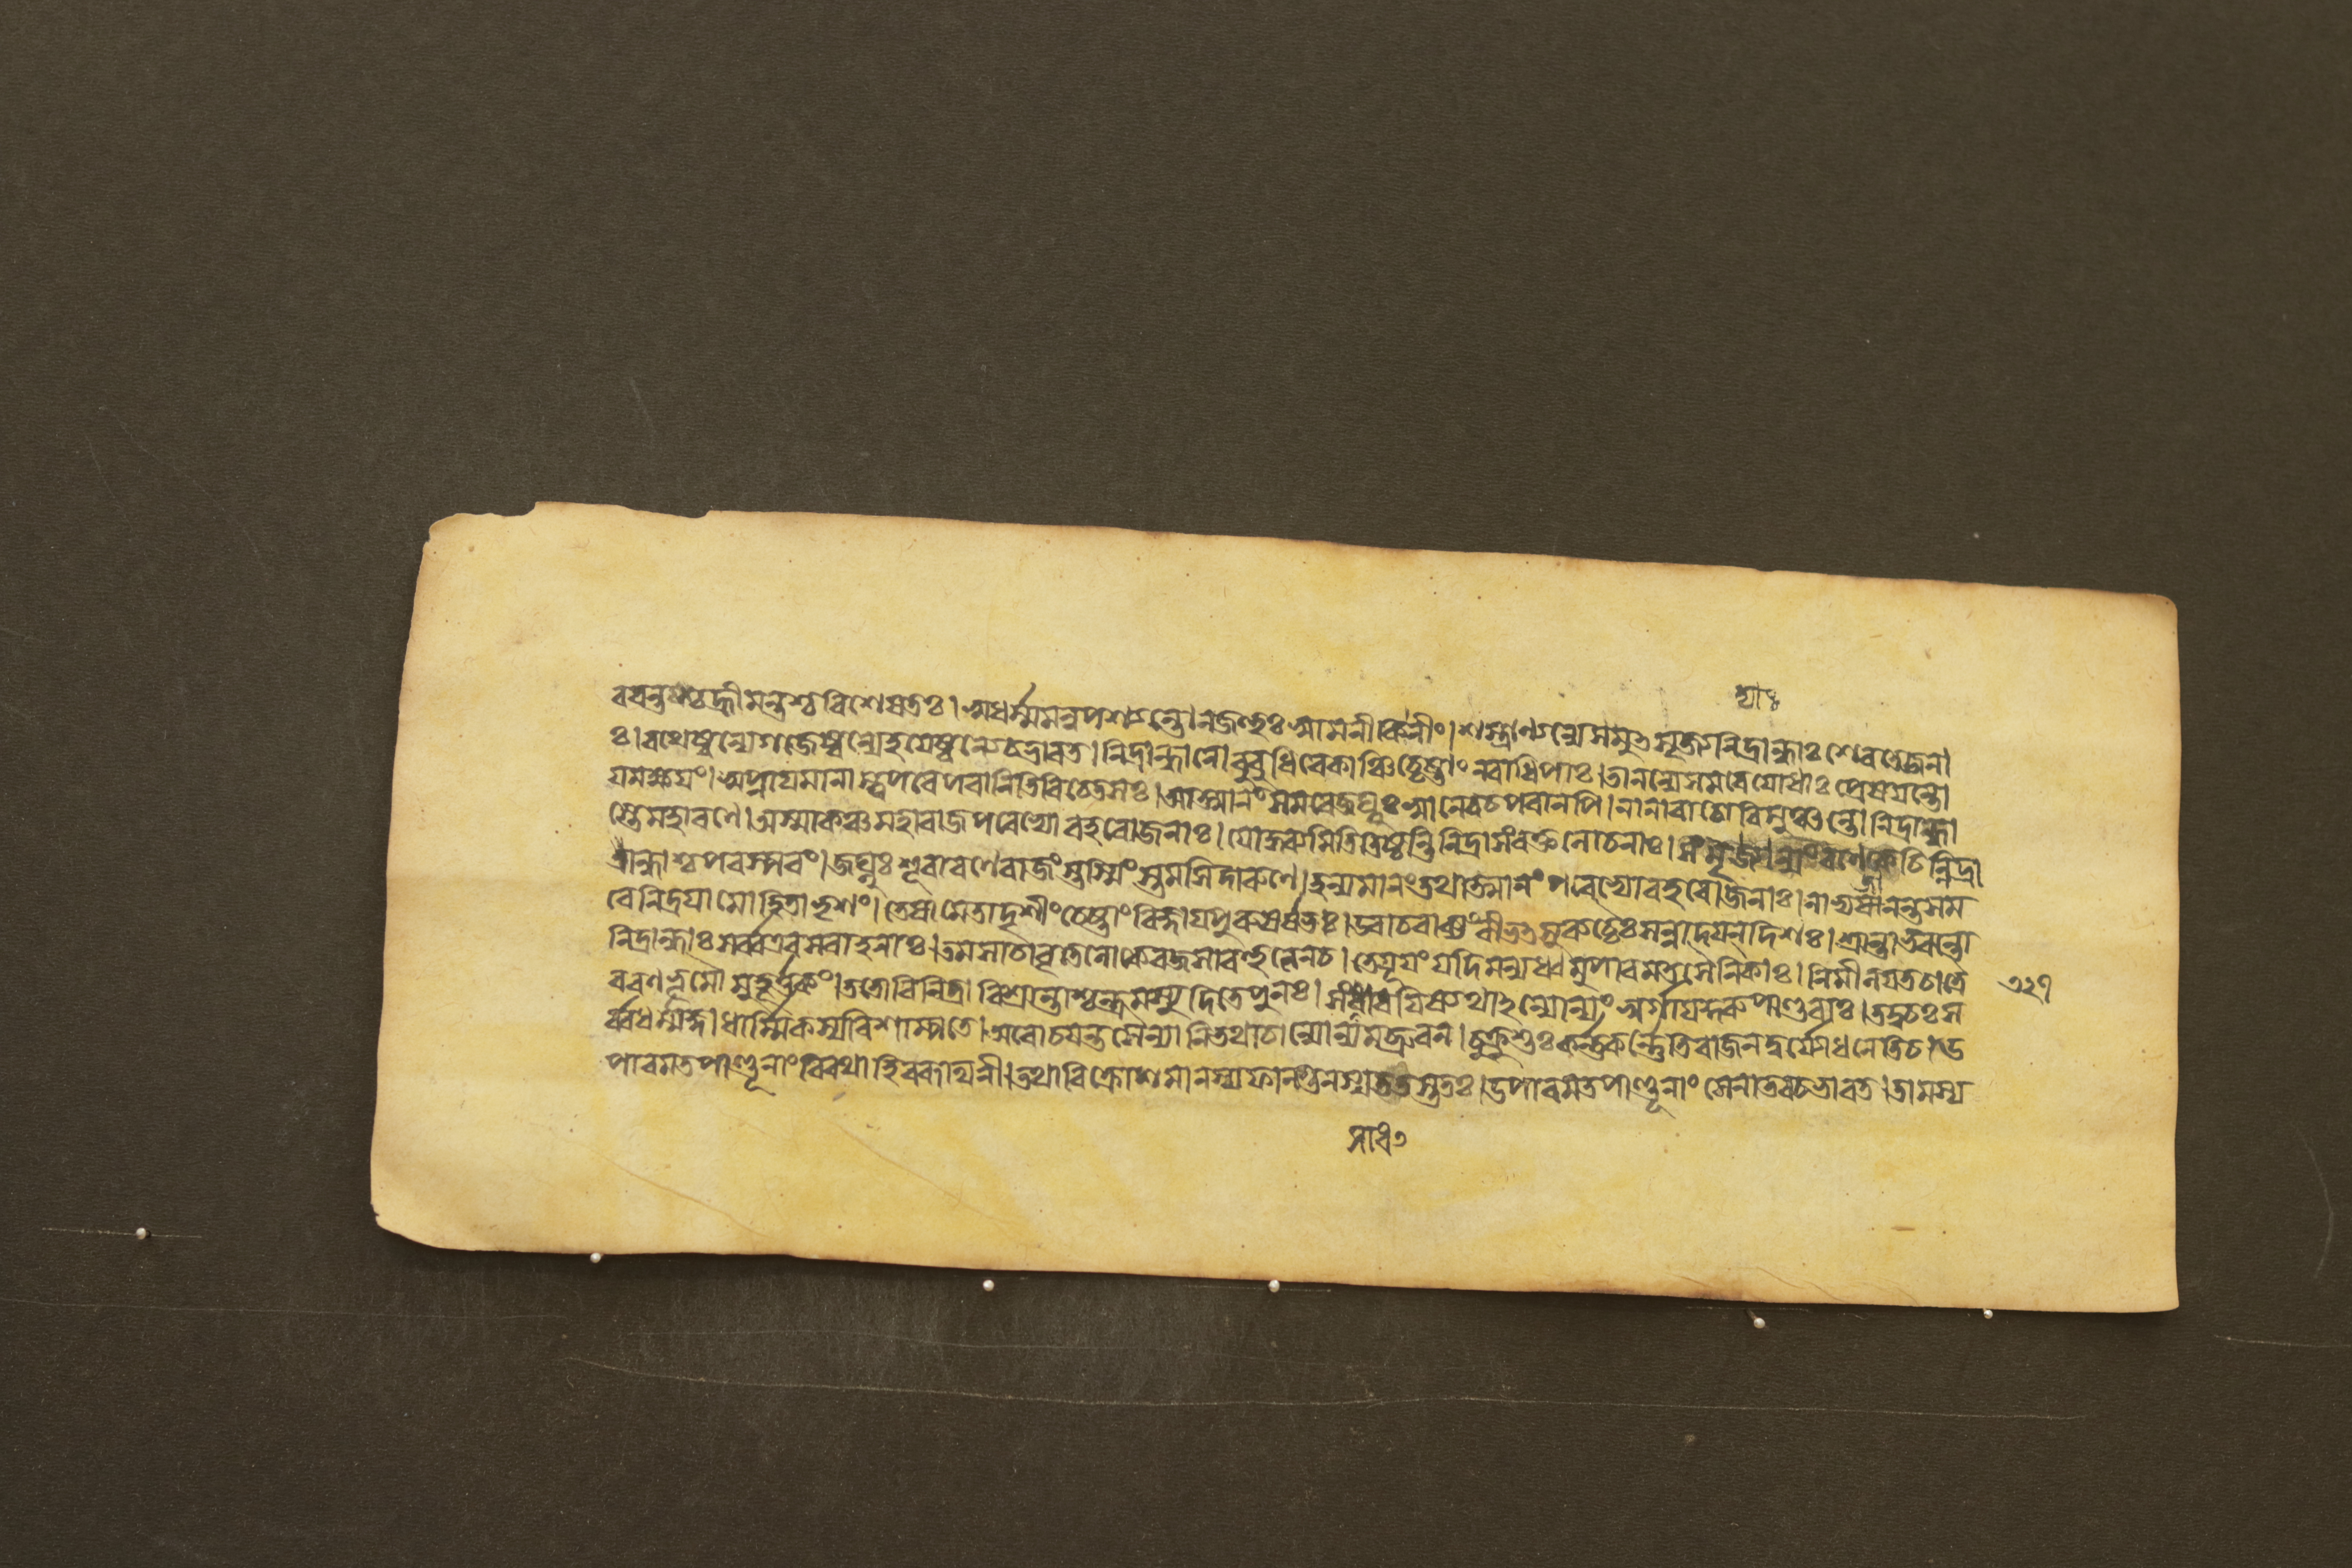 রয়ন্তশ্চহ্রীমন্তশ্চবিশেষতঃ।স্বধর্ম্মমনুপশ্যন্তোনজহুঃস্বামনীকিনীং।শস্ত্রাণ্যন্যেসমুৎসৃজ্যনিদ্রান্ধাঃশেরতেজনা
ঃ।রথেষ্বন্যেগজেষ্বন্যেহয়েষ্বন্যেচভারত।নিদ্রান্ধানোবুবুধিরেকাঞ্চিচ্চেষ্টাংনরাধিপাঃ।তানন্যেসমরেযোধাঃপ্রেষয়ন্তো
যমক্ষয়ং।স্বপ্নায়মানাস্ত্বপরেপরানিতিবিচেতসঃ।আত্মানংসমরেজঘ্নুঃস্বানেবচপরানপি।নানাবাচোবিমুঞ্চন্তোনিদ্রান্ধা
স্তেমহারণে।অস্মাকঞ্চমহারাজপরেভ্যোবহবোজনাঃ।যোদ্ধব্যমিতিতিষ্ঠন্তিনিদ্রাসংরক্তলোচনাঃ।সংমৃজ্যান্যেরণেকেচিন্নিদ্রা
ন্ধাশ্চপরস্পরং।জঘ্নুঃশূরারণেরাজংস্তস্মিংস্তমসিদারুণে।হন্যমানংতথাত্মানংপরেভ্যোবহবোজনাঃ।নাভ্যজানন্তসম
রেনিদ্রয়ামোহিতাভৃশং।তেষামেতাদৃশীংচেষ্টাংবিজ্ঞায়পুরুষর্ষভঃ।উবাচবাক্যংবীভৎসুরুচ্চৈঃসন্নাদয়ন্দিশঃ।শ্রান্তাভবন্তো
নিদ্রান্ধাঃসর্ব্বএবসবাহনাঃ।তমসাচাবৃতেলোকেরজসাবহুলেনচ।তেযূয়ংযদিমন্যধ্বমুপারমতসৈনিকাঃ।নিমীলয়তচাত্রৈ
বরণভূমৌমুহূর্ত্তকং।ততোবিনিদ্রাবিশ্রান্তাশ্চন্দ্রমস্যুদিতেপুনঃ।সংসাধয়িষ্যথান্যোন্যংস্বর্গায়কুরুপাণ্ডবাঃ।তদ্বচঃস
র্ব্বধর্ম্মজ্ঞাধার্ম্মিকস্যবিশাম্পতে।অরোচয়ন্তসৈন্যানিতথাচান্যোন্যমব্রুবন।চুক্রুশুঃকর্ণ্ণকর্ণ্ণেতিরাজন্দুর্যোধনেতিচ।উ
পারমতপাণ্ডূনাংবিরথাহিবরূথিনী।তথাবিক্রোশমানস্যফাল্গুনস্যততস্ততঃ।উপারমতপাণ্ডূনাংসেনাতবচভারত।তামস্য